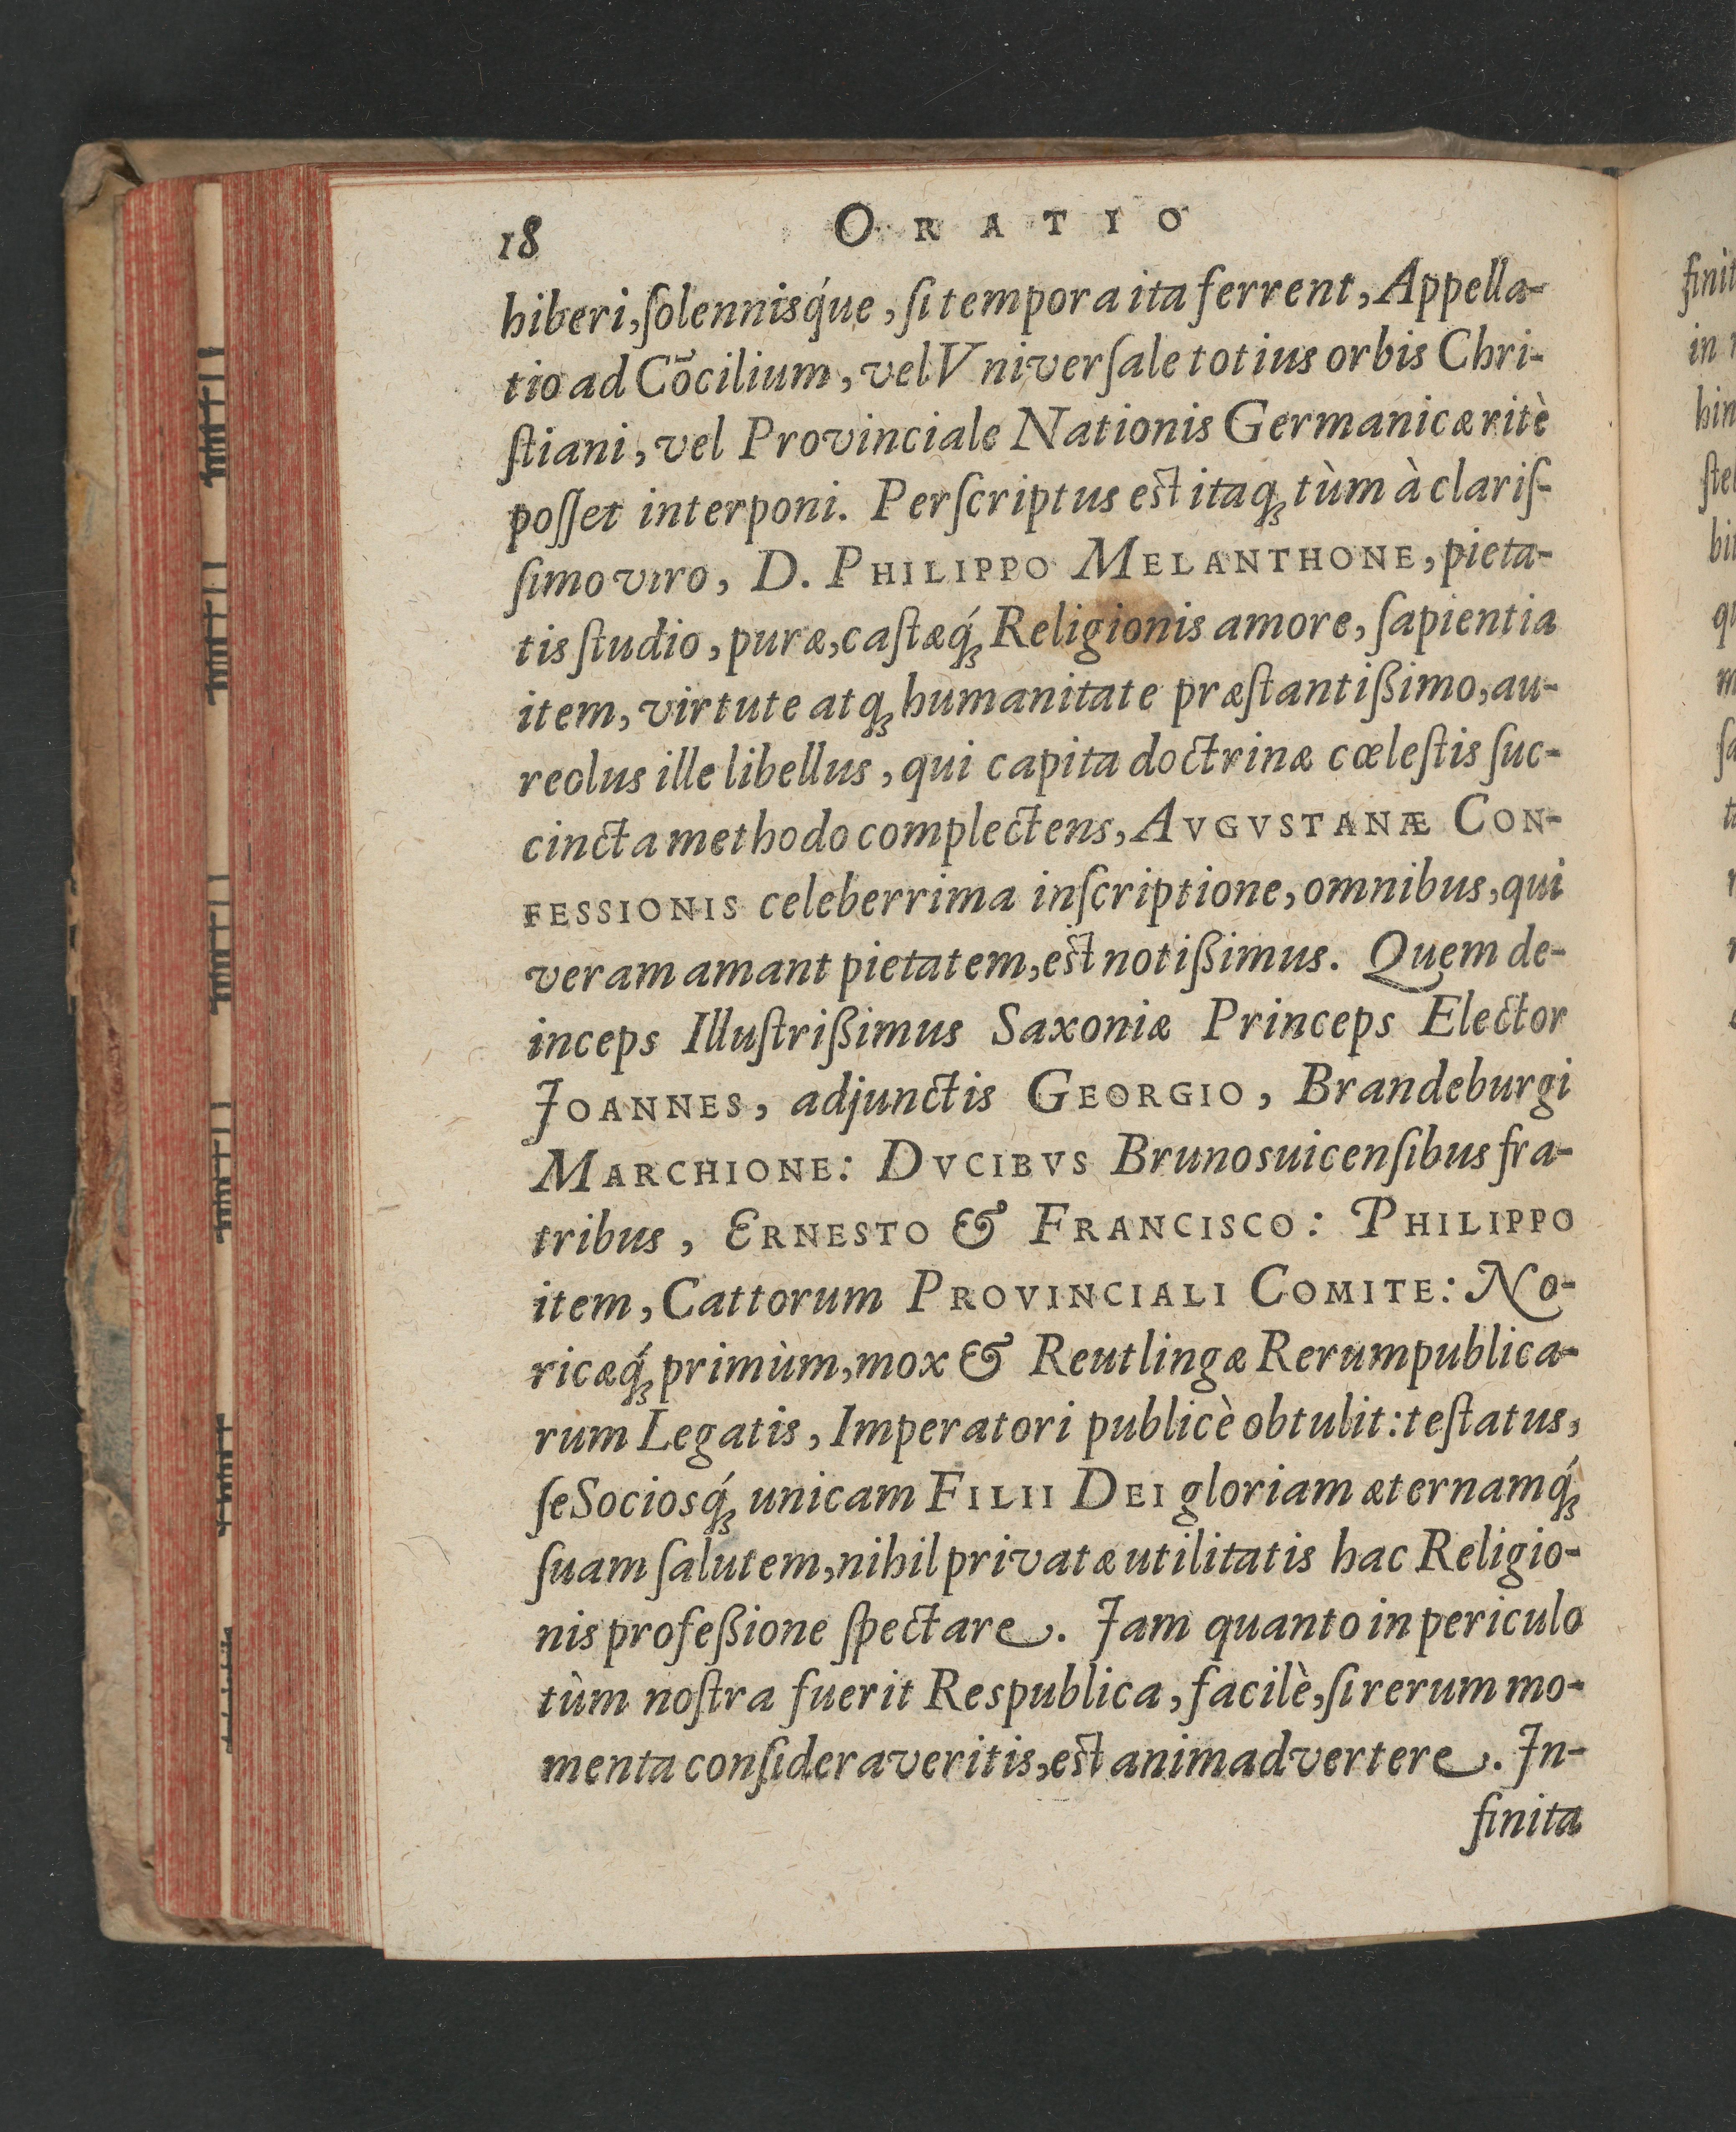 18 ORATIO
hiberi, ſolennisq́ue, ſi tempora ita ferrent, Appella-
tio ad Cõcilium, vel Vniverſale totius orbis Chri-
ſtiani, vel Provinciale Nationis Germanicæ ritè
poſſet interponi. Perſcriptus est itaqꝫ tùm à clariſ-
ſimo viro, D. PHILIPPO MELANTHONE, pieta-
tis ſtudio, puræ, caſtæq́ꝫ Religionis amore, ſapientia
item, virtute atqꝫ humanitate præſtantißimo, au-
reolus ille libellus, qui capita doctrinæ cœleſtis ſuc-
cincta methodo complectens, AVGVSTANÆ CON-
FESSIONIS celeberrima inſcriptione, omnibus, qui
veram amant pietatem, est notißimus. Quem de-
inceps Illuſtrißimus Saxoniæ Princeps Elector
JOANNES, adjunctis GEORGIO, Brandeburgi
MARCHIONE: DVCIBVS Brunosuicenſibus fra-
tribus, ERNESTO & FRANCISCO: PHILIPPO
item, Cattorum PROVINCIALI COMITE: No-
ricæq́ꝫ primùm, mox & Reutlingæ Rerumpublica-
rum Legatis, Imperatori publicè obtulit: teſtatus,
ſe Sociosq́ꝫ unicam FILII DEI gloriam æternamq́ꝫ
ſuam ſalutem, nihil privatæ utilitatis hac Religio-
nis profeßione ſpectare. Jam quanto in periculo
tùm noſtra fuerit Respublica, facilè, ſi rerum mo-
menta conſideraveritis, est animadvertere. Jn-
finita